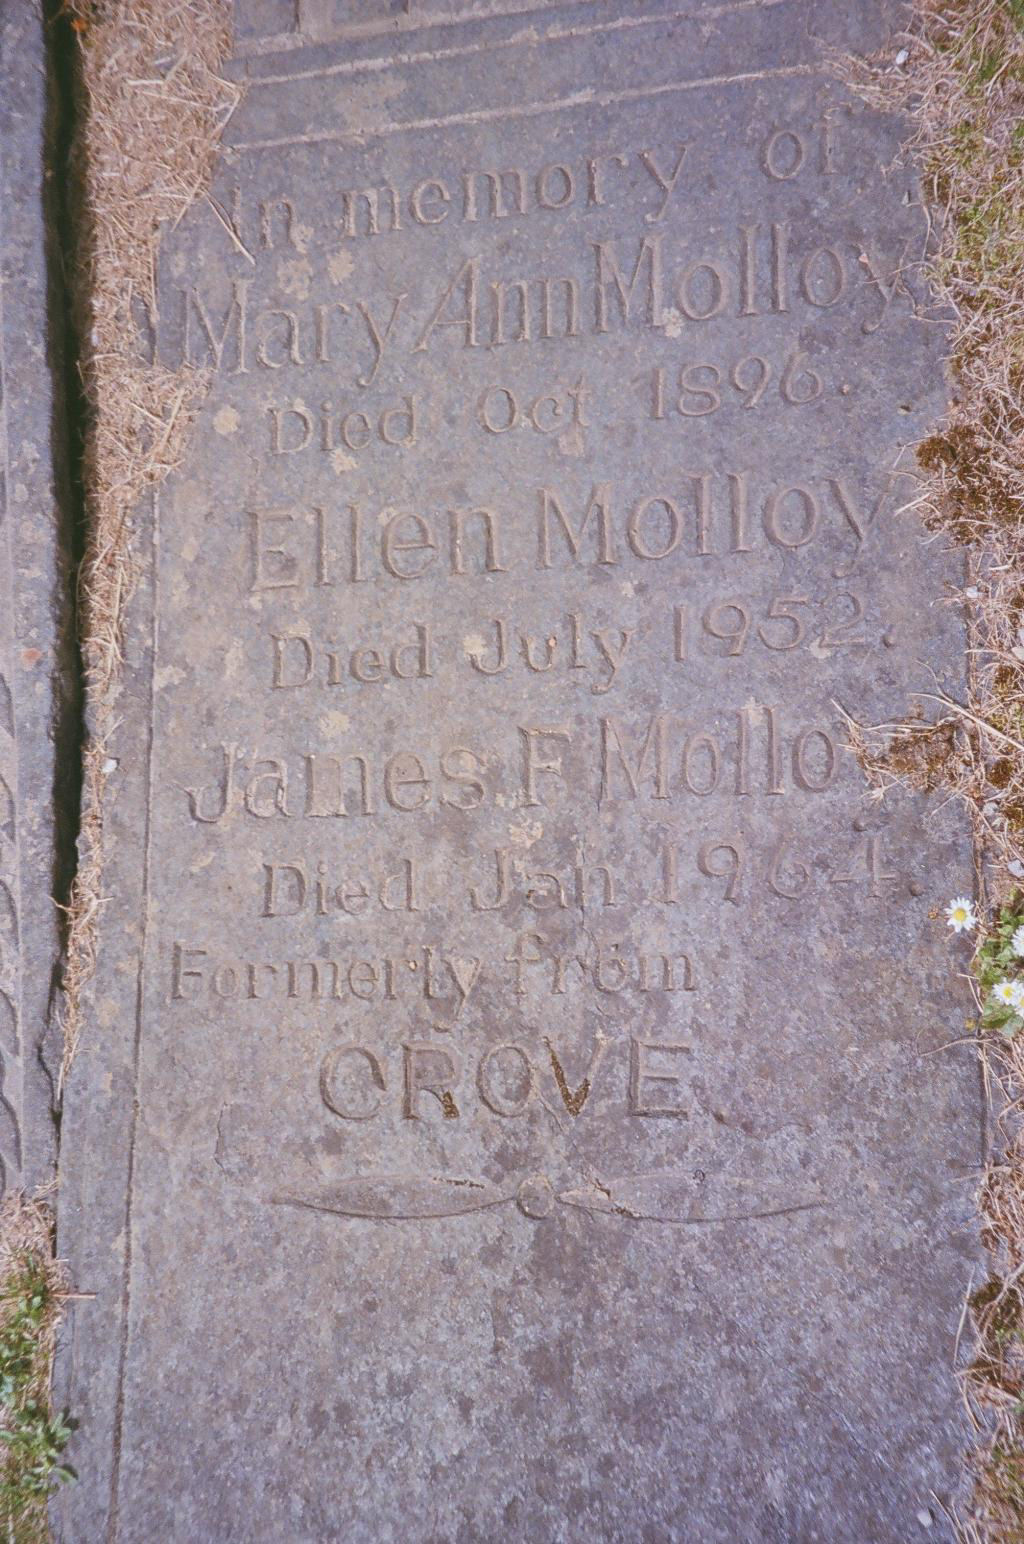 In memory of
Mary Ann Molloy
Died Oct 1896.
Ellen Molloy
Died July 1952.
James F Mollo
Died Jan 1964.
Formerly from
CROVE